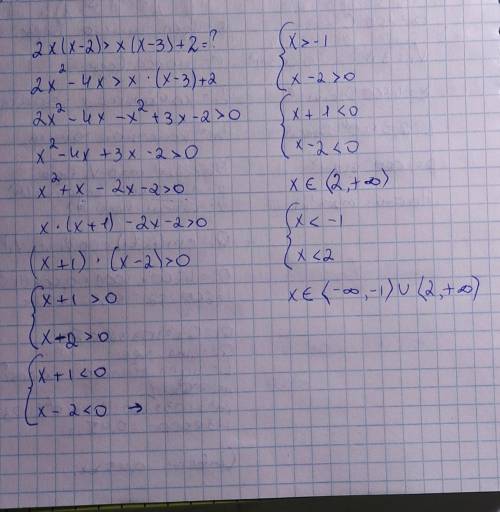 2x(x-2)>x(x-3)+2=?
2x²-4x>x·(x-3)+2
2x²-4x-x²+3x-2>0
x²-4x+3x-2>0
x²+x-2x-2>0
x·(x+1)-2x-2>0
(x+1)·(x-2)>0
{x+1>0
x+2>0
{x+1<0
x-2<0 →
{x>-1
x-2>0
{x+1<0
x-2<0
x∈⟨2,+∞⟩
{x<-1
x<2
x∈⟨-∞,-1⟩∪⟨2,+∞⟩